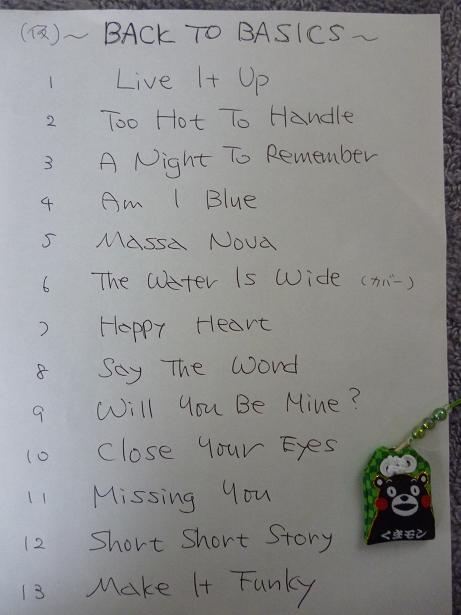 (仮)~ BACK TO BASICS ~
1 Live It Up
2 Too Hot To Handle
3 A Night To Remember
4 Am I Blue
5 Massa Nova
6 The Water Is Wide (カバー)
7 Happy Heart
8 Say The Word
9 Will You Be Mine?
10 Close Your Eyes
11 Missing You
12 Short Short Story
13 Make It Funky
くまモン